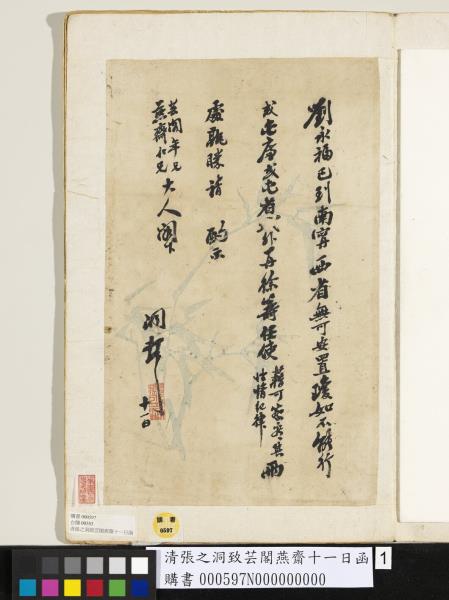 劉永福已到南寧西省無可安置瓊如不能行
或屯廉或屯省以外再徐籌任使
藉可察其
性情紀律
兩
處孰勝請
酌示
芸閣年兄
燕齋仁兄
大人閣下
洞頓
十一日
購書 000597
清張之洞致芸閣燕齋十一日函
購書
0597
清張之洞致芸閣燕齋十一日函
1
購書 000597N000000000